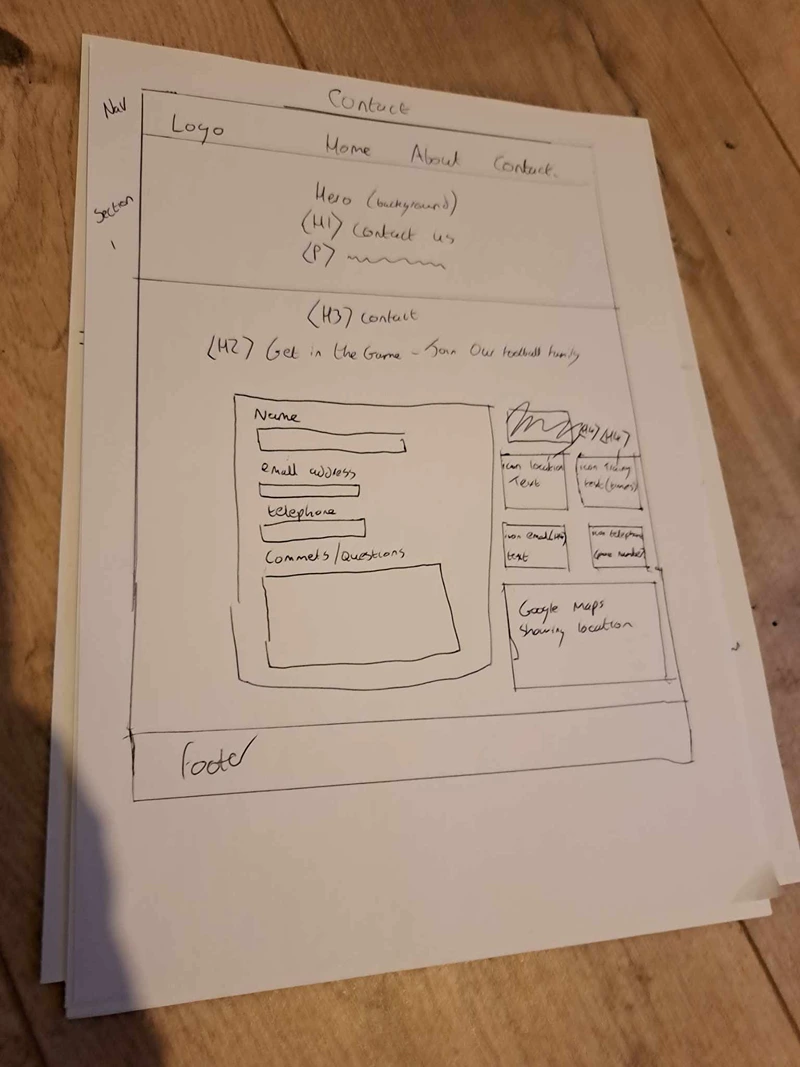 Contact
Nav
Logo
Home About Contact.
Section
1
Hero (background)
<H1> Contact us
<P>
<H3> Contact
<H2> Get in the Game - Join Our football family
Name
email address
telephone
Commets/Questions
<H4>
icon location
Text
icon
text (times)
icon email (H4)
text
icon telephone
(phone number)
Google Maps
Showing location
Footer